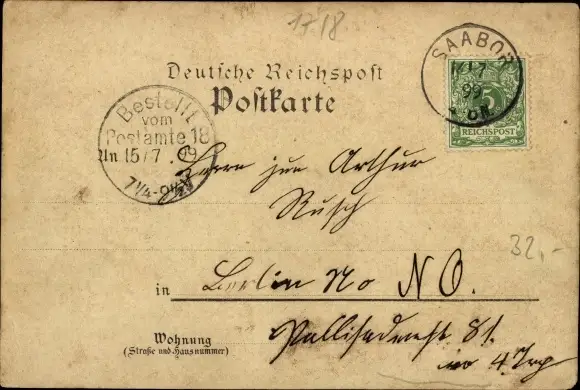 17.18
Deutsche Reichspost
Postkarte
SAABOR
17 7
99
5
REICHSPOST
Bestellt
vom
Postamte 18
An 15/7 . 99
7 1/4-
Herrn Arthur
Rusch
32,-
in Berlin NO.
Wohnung
(Straße und Hausnummer)
Pallisadenstr 81.
4 Trp